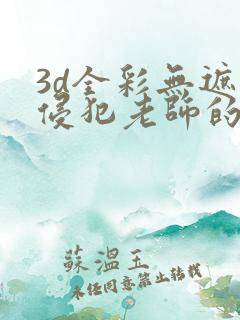 3d全彩無遮
侵犯老師的
蘇溫玉
未经同意禁止转载